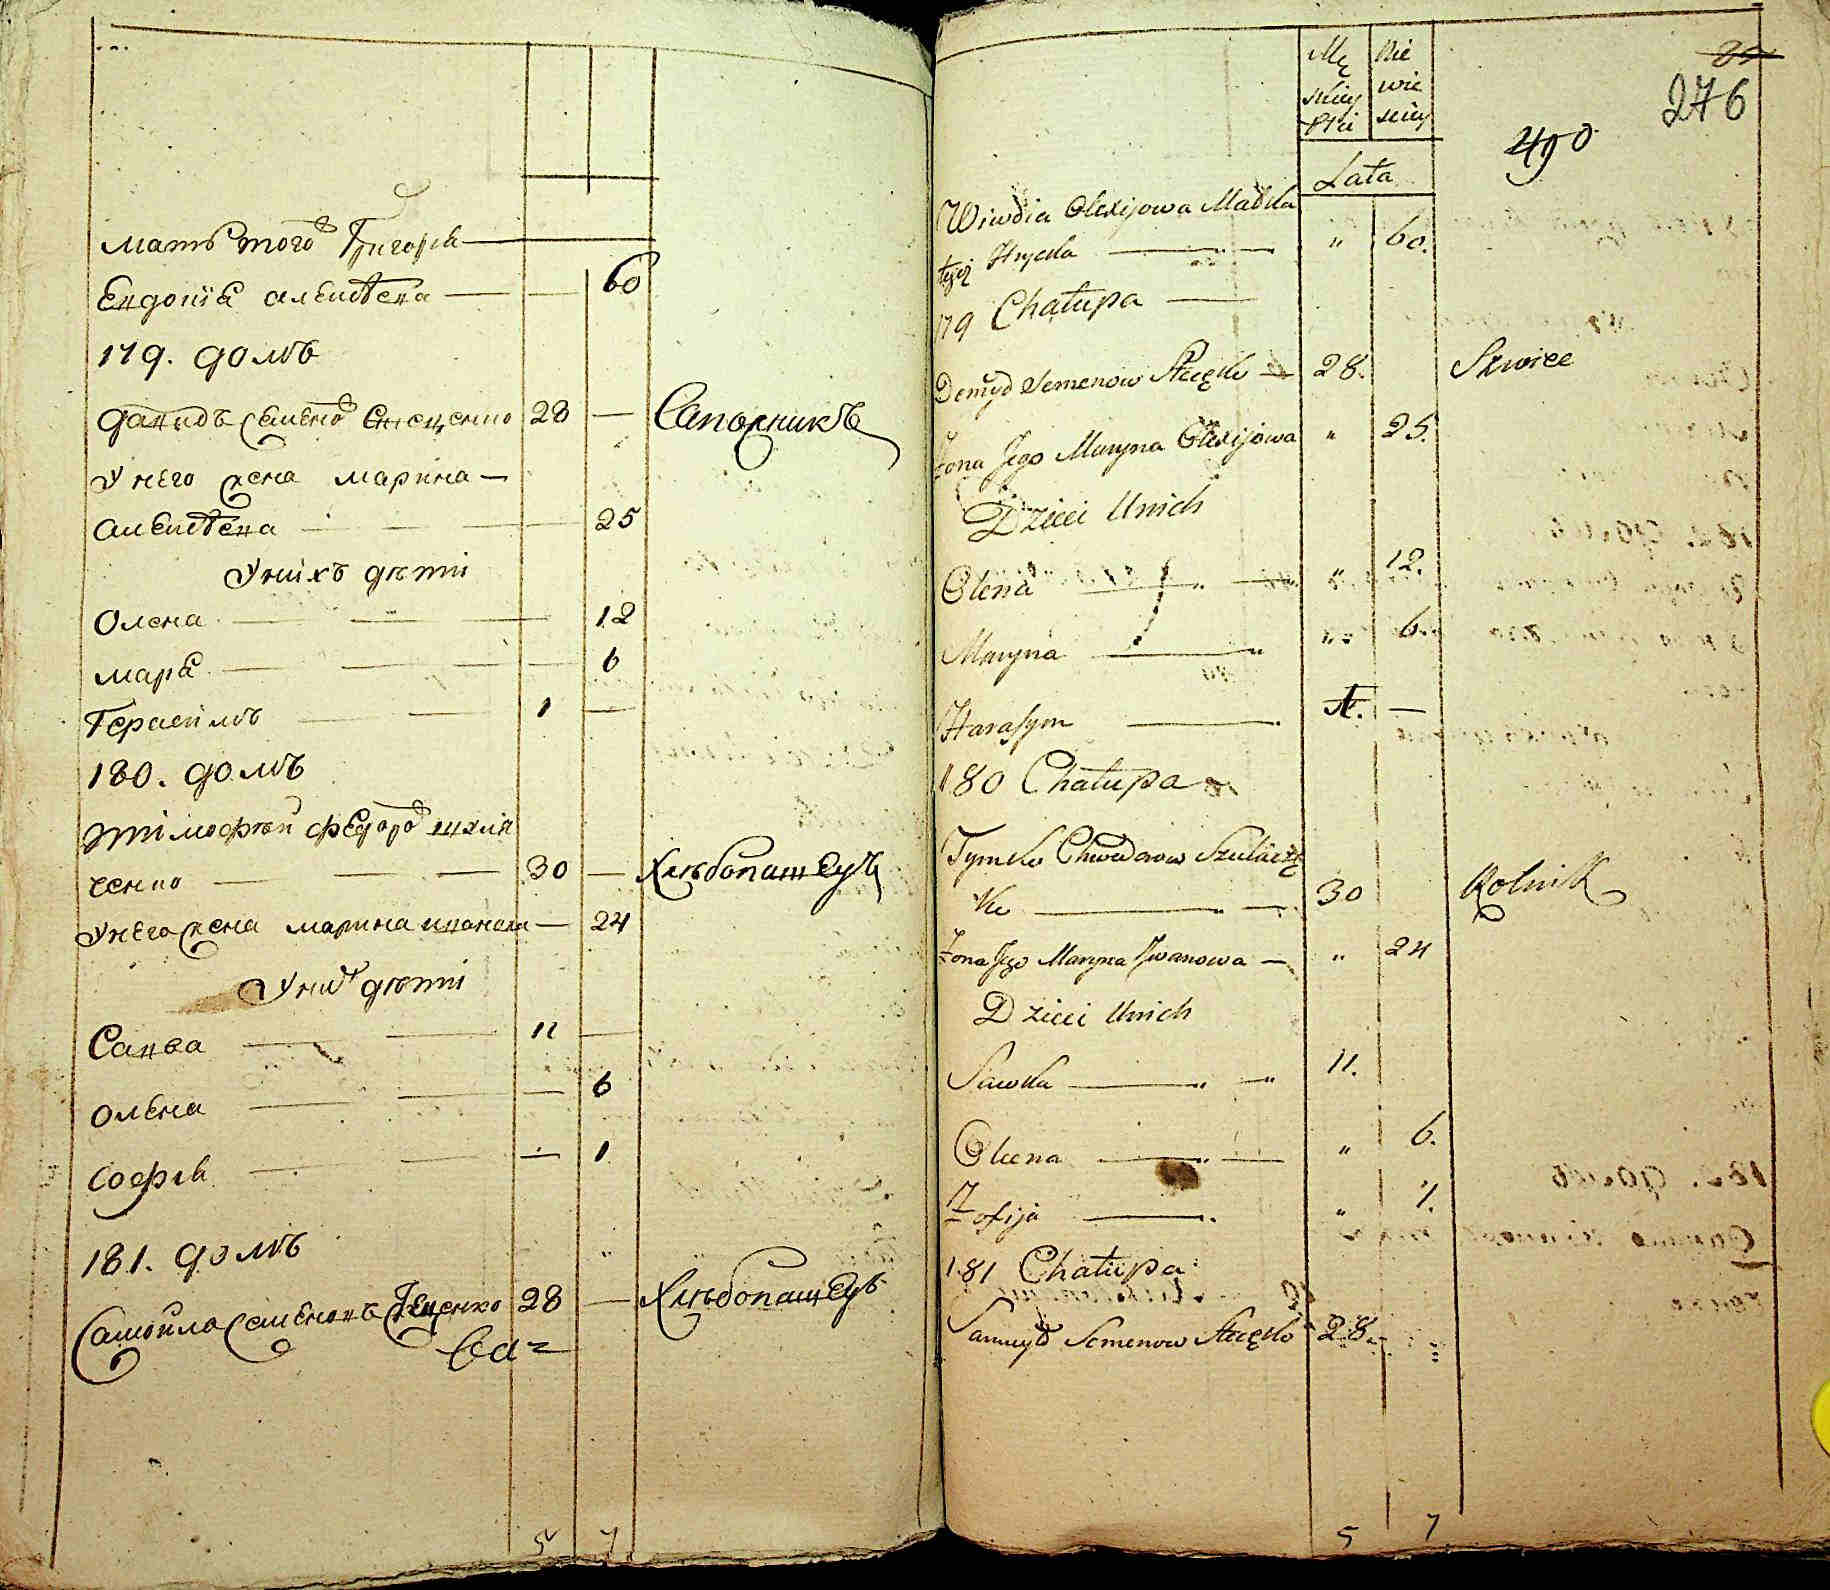 мать того Григорія
Евдокія алексѣева 60
179. домъ
Данидъ Семенов 28 — Сапожникъ
У него жена марина
алексѣева 25
У нихъ дѣти
Олена 12
мара 6
Герасимъ 1
180. домъ
Тімофѣй Федоров шклія
ренко 30 — Хлѣбопашецъ
У него жена марина иванова — 24
У них дѣти
Савва 11
олена 6
софія 1
181. домъ
Самойла Семеновъ 28 — Хлѣбопашецъ
5 7
Mę
skiey
płci
Nie
wie
sciey
276
490
Lata
Wiwdia Olexijowa Matka
tegoż Hrycka " 60.
179 Chałupa
Demyd Semenow Steçko 28. Szwiec
Żona Jego Maryna Olexijowa " 25.
Dzieci Unich
Olena " 12.
Maryna " 6.
Harasym 1. —
180 Chałupa
Tymko Chwedorow
ko 30 Rolnik
Żona Jego Maryna Jwanowa — " 24
Dzieci Unich
Sawka 11.
Olena " 6.
Zofija " 1.
181 Chałupa
Samuyło Semenow Steçko 28. "
5 7